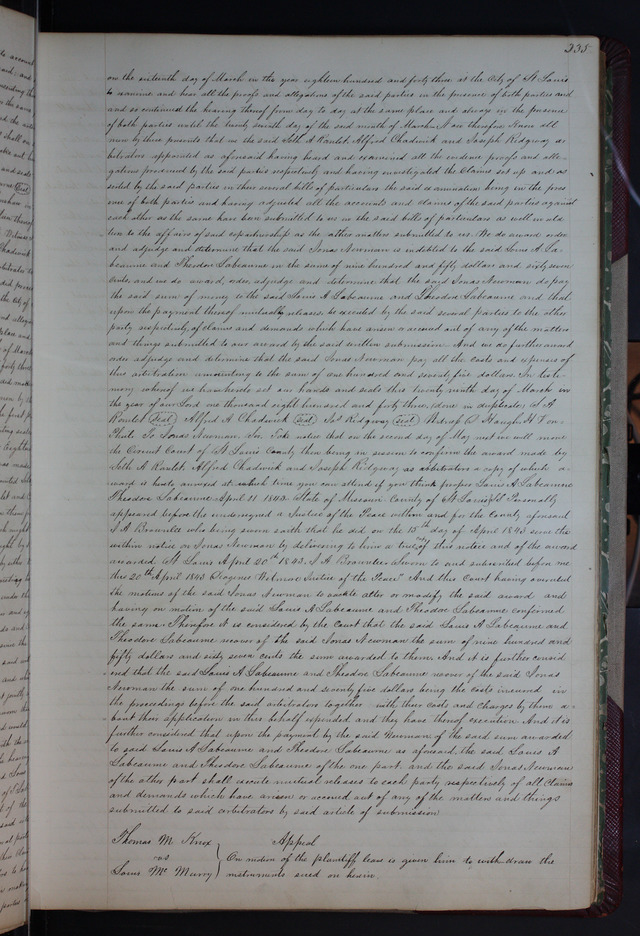 335
on the sixteenth day of March in the year eighteen hundred and forty three at the City of St Louis
to examine and hear all the proofs and allegations of the said parties in the presence of both parties and
and so continued the hearing thereof from day to day at the same place and always in the presence
of both parties until the twenty seventh day of the said month of March. Now therefore Know all
men by these presents that we the said Seth A Ranlett Alfred Chadwick and Joseph Ridgway ar-
bitrators appointed as aforesaid having heard and examined all the evidence proofs and alle-
gations produced by the said parties respectively and having investigated the claims set up and as-
serted by the said parties in their several bills of particulars the said examination being in the pres
ence of both parties and having adjusted all the accounts and claims of the said parties against
each other as the same have been submitted to us in the said bills of particulars as well in rela
tion to the affairs of said copartnership as the other matters submitted to us. We do award order
and adjudge and determine that the said Jonas Newman is indebted to the said Louis A La-
beaume and Theodore Labeaume in the sum of nine hundred and fifty dollars and sixty seven
cents and we do award, order, adjudge and determine that the said Jonas Newman do pay
the said sum of money to the said Louis A Labeaume and Theodore Labeaume and that
upon the payment thereof mutually releases be executed by the said several parties to the other
party respectively, of claims and demands which have arisen or accrued out of any of the matters
and things submitted to our award by the said written submission. And we do further award
order adjudge and determine that the said Jonas Newman pay all the costs and expenses of
this arbitration amounting to the sum of one hundred and seventy five dollars. In testi-
mony whereof we have hereto set our hands and seals this twenty ninth day of March in
the year of our Lord one thousand eight hundred and forty three, (done in duplicate) S A
Ranlett (Seal) Alfred A. Chadwick (Seal) Jos Ridgway (Seal)
To Jonas Newman. Sir, Take notice that on the second day of May next we will move
the Circuit Court of St Louis County then being in session to confirm the award made by
Seth A Ranlett Alfred Chadwick and Joseph Ridgway as arbitrators a copy of which a-
ward is hereto annexed at which time you can attend if you think proper Louis A Labeaume
Theodore Labeaume April 11 1843. State of Missouri County of St Louis Sct Personally
appeared before the undersigned a Justice of the Peace within and for the County aforesaid
who being sworn saith that he did on the 15th day of April 1843 serve the
within notice on Jonas Newman by delivering to him a true copy of this notice and of the award
awarded. St Louis April 20th 1843. Sworn to and subscribed before me
this 20th April 1843 Justice of the Peace" And this Court having overruled
the motions of the said Jonas Newman to vacate alter or modify the said award and
having on motion of the said Louis A Labeaume and Theodore Labeaume confirmed
the same. Therefore it is considered by the Court that the said Louis A Labeaume and
Theodore Labeaume recover of the said Jonas Newman the sum of nine hundred and
fifty dollars and sixty seven cents the sum awarded to them. And it is further consid
ered that the said Louis A Labeaume and Theodore Labeaume recover of the said Jonas
Newman the sum of one hundred and seventy five dollars being the costs incurred in
the proceedings before the said arbitrators together with their costs and charges by them a-
bout their application in this behalf expended and they have thereof execution. And it is
further considered that upon the payment by the said Newman of the said sum awarded
to said Louis A Labeaume and Theodore Labeaume as aforesaid, the said Louis A
Labeaume and Theodore Labeaume of the one part and the said Jonas Newman
of the other part shall execute mutual releases to each party respectively of all Claims
and demands which have arisen or accrued out of any of the matters and things
submitted to said arbitrators by said article of submission
Thomas M. Knox
vs
Louis McMurry
Appeal
On motion of the plaintiff leave is given him to with-draw the
instruments sued on herein.